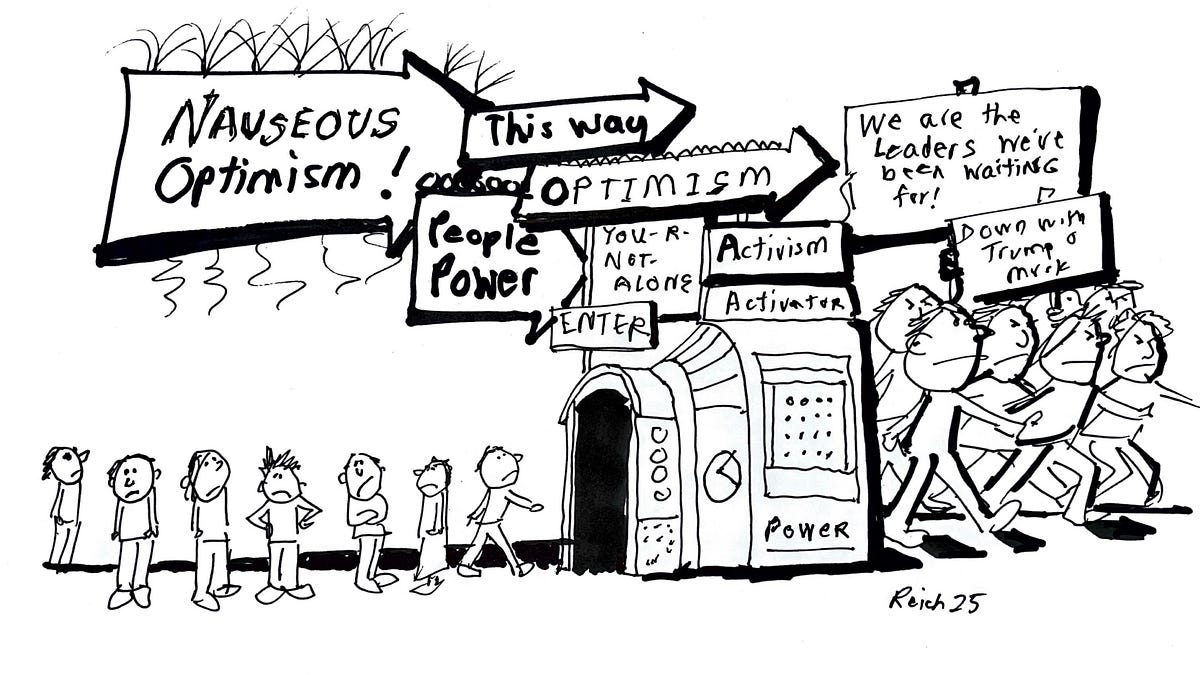 NAUSEOUS
Optimism!
This way
OPTIMISM
People
Power
YOU-R-
NOT-
ALONE
ENTER
Activism
Activator
POWER
We are the
Leaders we've
been waiting
for!
Down with
Trump &
Musk
Reich 25